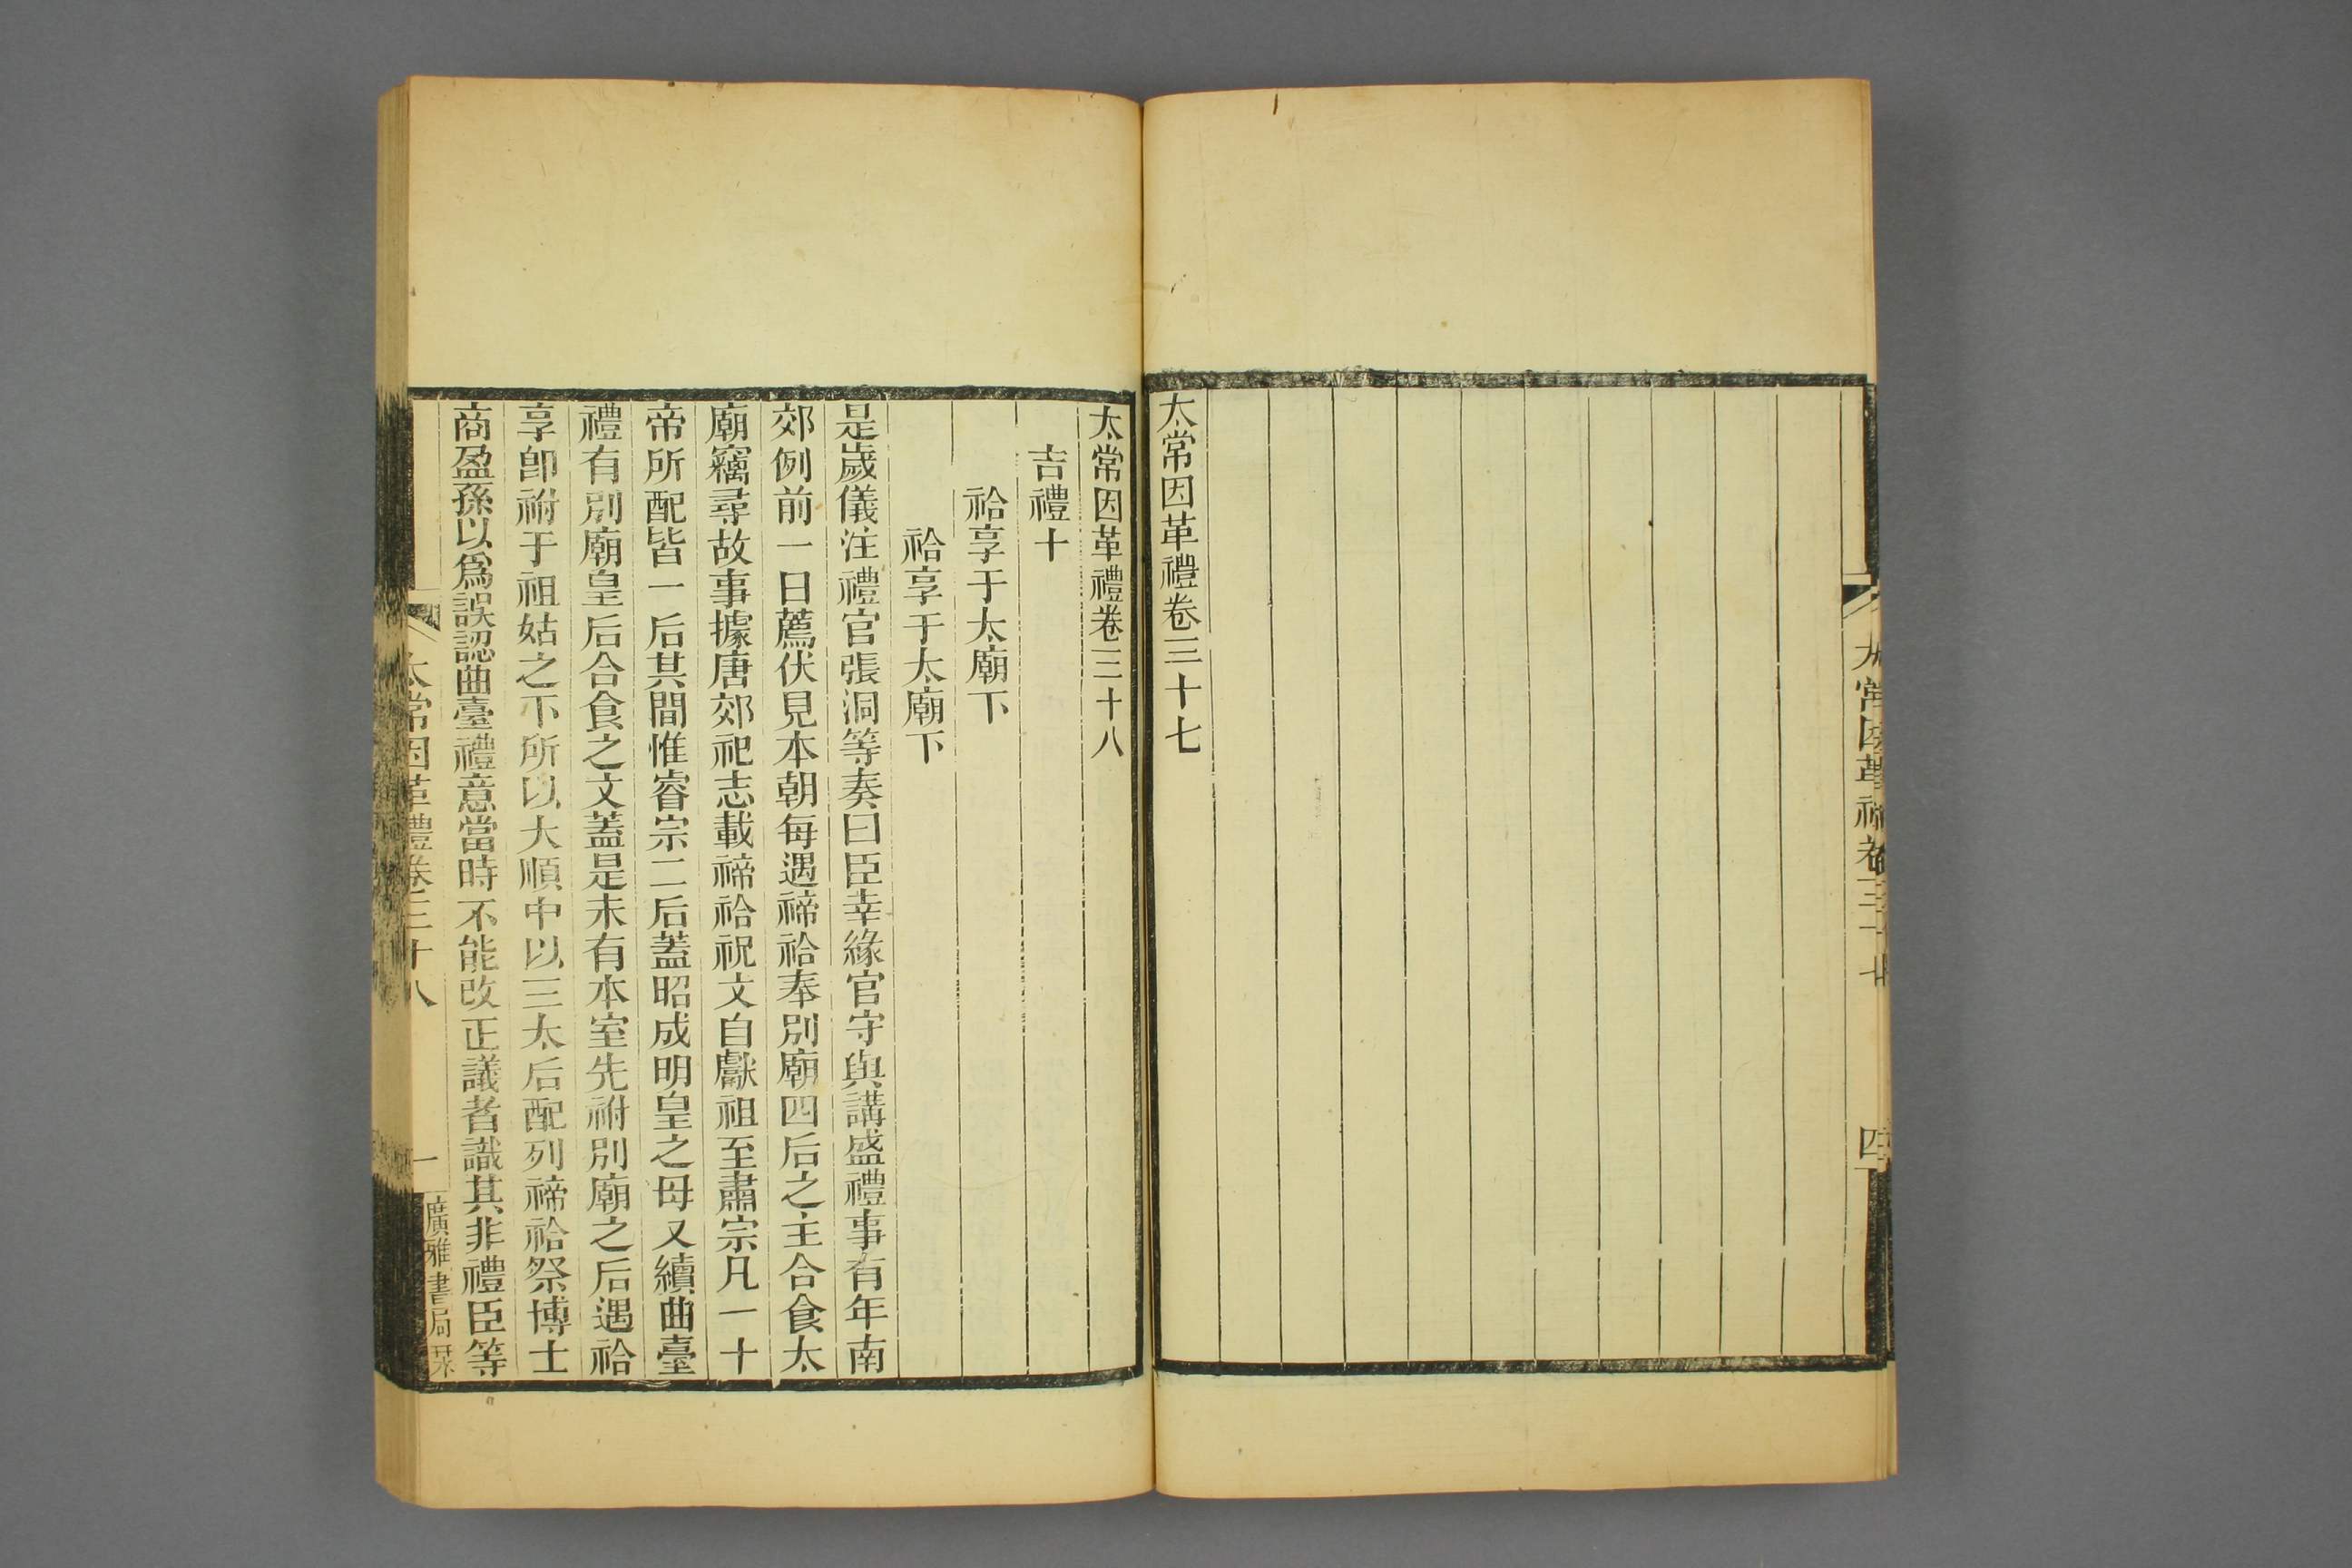 太常因革禮卷三十七
四
太常因革禮卷三十七
太常因革禮卷三十八
吉禮十
祫享于太廟下
祫享于太廟下
是歲儀注禮官張洞等奏曰臣幸緣官守與講盛禮事有年南
郊例前一日薦伏見本朝每遇禘祫奉別廟四后之主合食太
廟竊尋故事據唐郊祀志載禘祫祝文自獻祖至肅宗凡一十
帝所配皆一后其間惟睿宗二后蓋昭成明皇之母又續曲臺
禮有別廟皇后合食之文蓋是未有本室先祔別廟之后遇祫
享卽祔于祖姑之下所以大順中以三太后配列禘祫祭博士
商盈孫以爲誤認曲臺禮意當時不能改正議者識其非禮臣等
太常因革禮卷三十八
一
廣雅書局栞